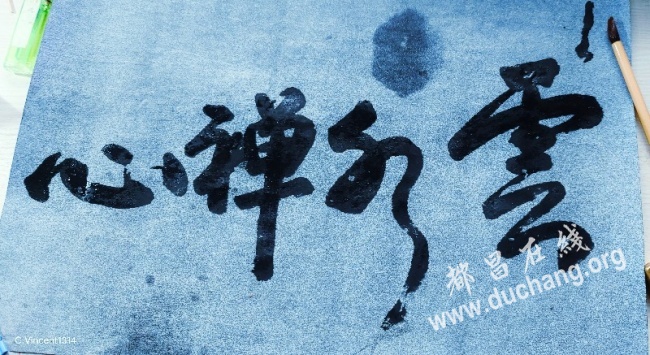 雲水禅心
都昌在线
www.duchang.org
C Vincent1314